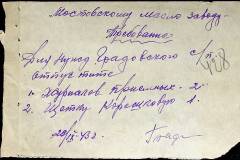 Мостовскому Масло заводу
Требование
Для нужд Градовского с/п
отпустите
1. Журналов приемных - 2
2. Щетку Корешковую 1.
428